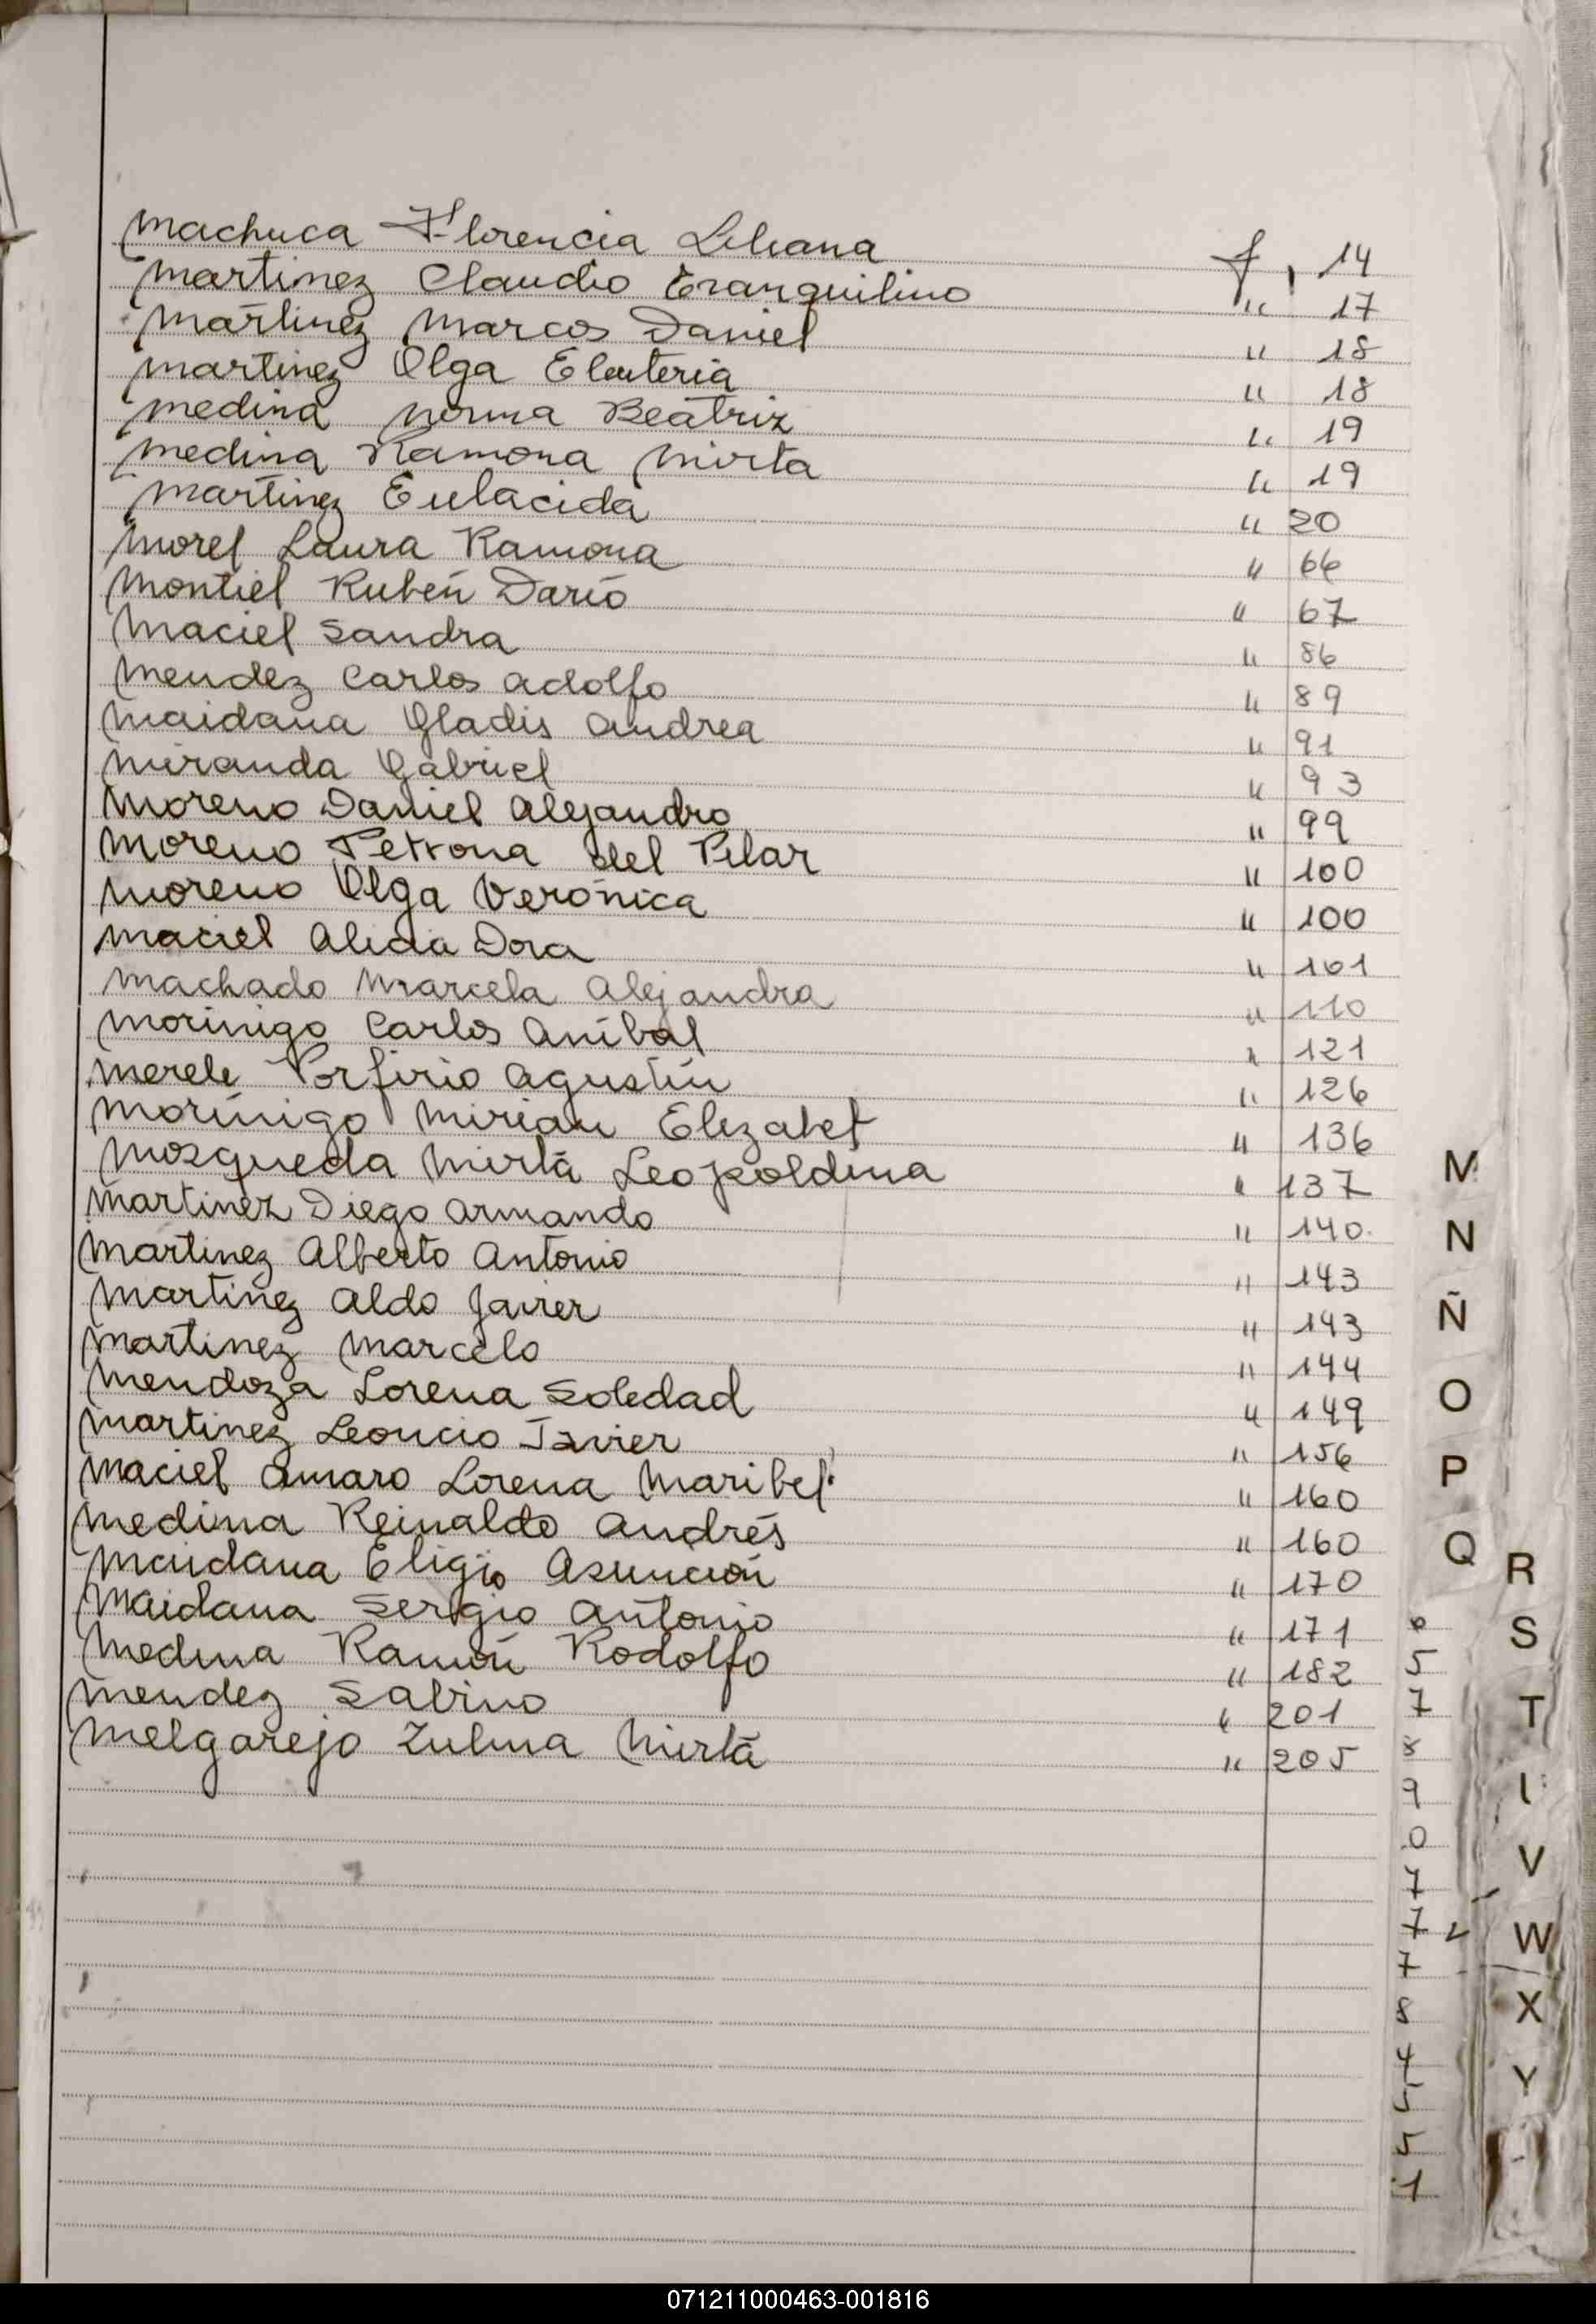 Machuca Florencia Liliana f, 14
Martinez Claudio Tranquilino " 17
Martinez Marcos Daniel " 18
Martinez Olga Eleuteria " 18
Medina Norma Beatriz " 19
Medina Ramona Mirta " 19
Martinez Eulacida " 20
Morel Laura Ramona " 66
Montiel Rubén Darío " 67
Maciel Sandra " 86
Mendez Carlos Adolfo " 89
Maidana Gladis Andrea " 91
Miranda Gabriel " 93
Moreno Daniel Alejandro " 99
Moreno Petrona del Pilar " 100
Moreno Olga Verónica " 100
Maciel Alicia Dora " 101
Machado Marcela Alejandra " 110
Morinigo Carlos Aníbal " 121
Merele Porfirio Agustín " 126
Morínigo Mirian Elizabet " 136
Mosqueda Mirta Leopoldina " 137
Martinez Diego Armando " 140
Martinez Alberto Antonio " 143
Martinez Aldo Javier " 143
Martinez Marcelo " 144
Mendoza Lorena Soledad " 149
Martinez Leoncio Javier " 156
Maciel Amaro Lorena Maribel " 160
Medina Reinaldo Andrés " 160
Maidana Eligio Asunción " 170
Maidana Sergio Antonio " 171
Medina Ramón Rodolfo " 182
Mendez Sabino " 201
Melgarejo Zulma Mirta " 205
M
N
Ñ
O
P
Q
R
S
T
V
W
X
Y
5
7
8
9
0
7
7
7
8
4
5
5
1
071211000463-001816